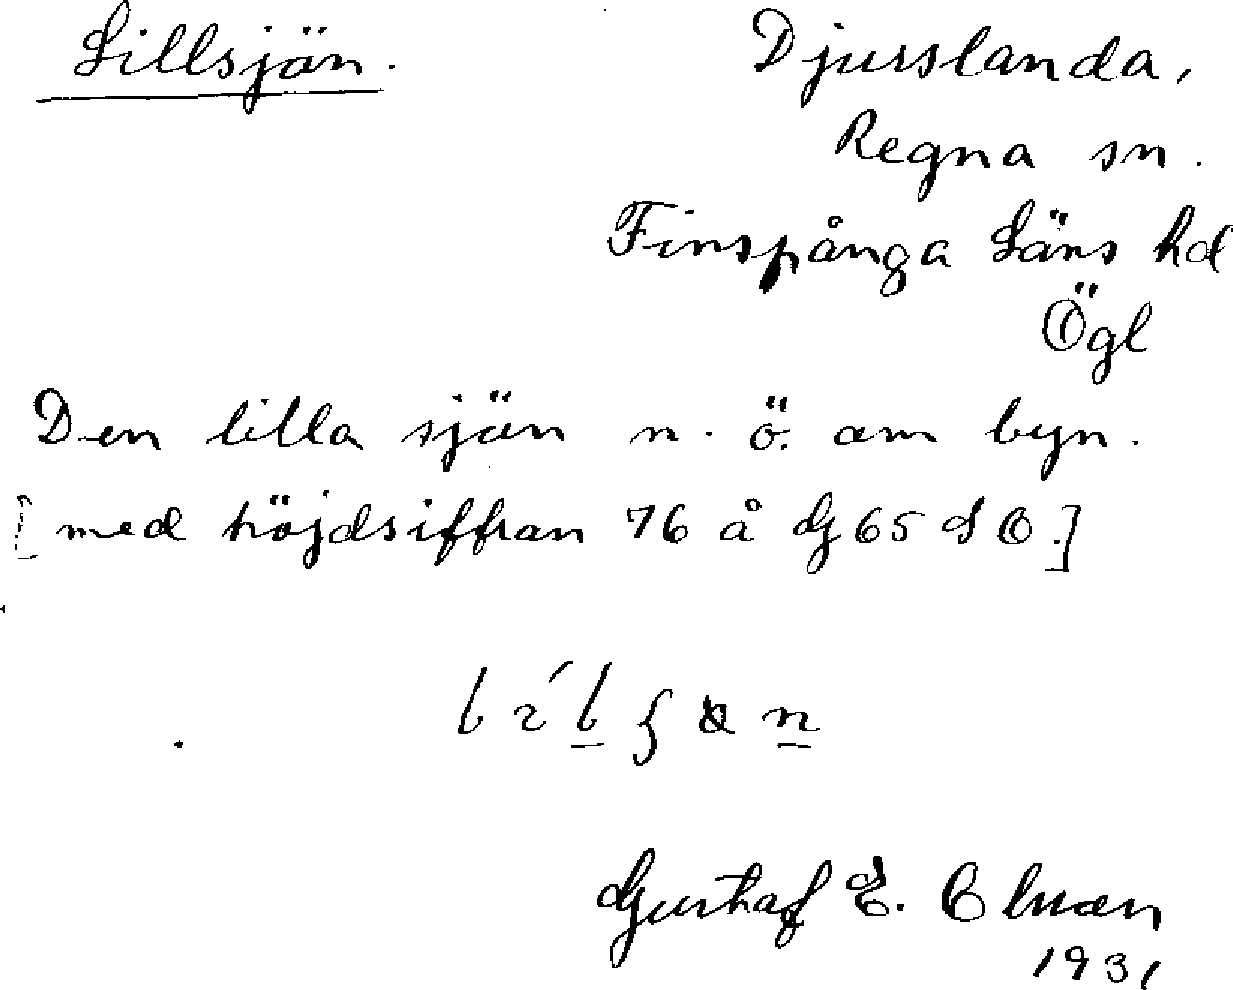 Lillsjön.
Djurslanda,
Regna sn.
Finspånga Läns hd
Ögl
Den lilla sjön n. ö. om byn.
[med höjdsiffran 76 å G 65 S O.]
Gustaf E.
1931